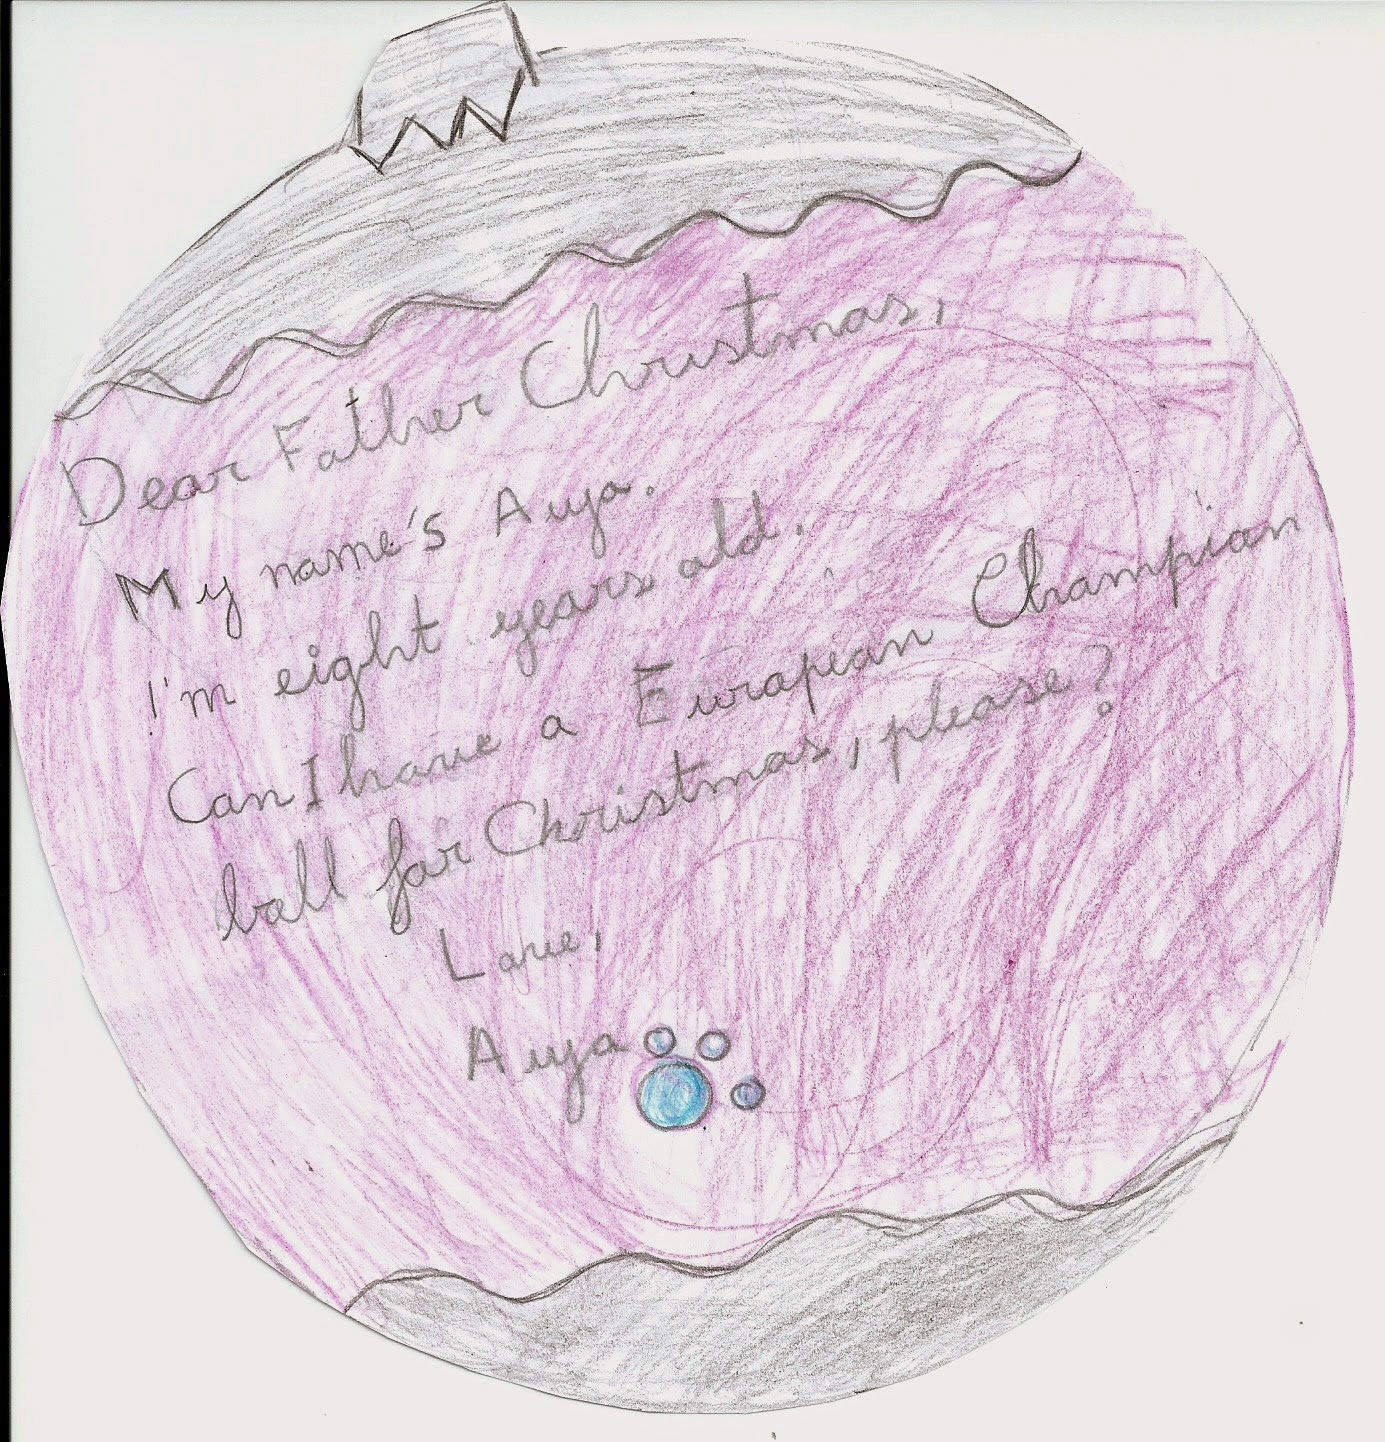 Dear Father Christmas,
My name's Auya.
I'm eight years old.
Can I have a European Champion
ball for Christmas, please?
Love,
Auya